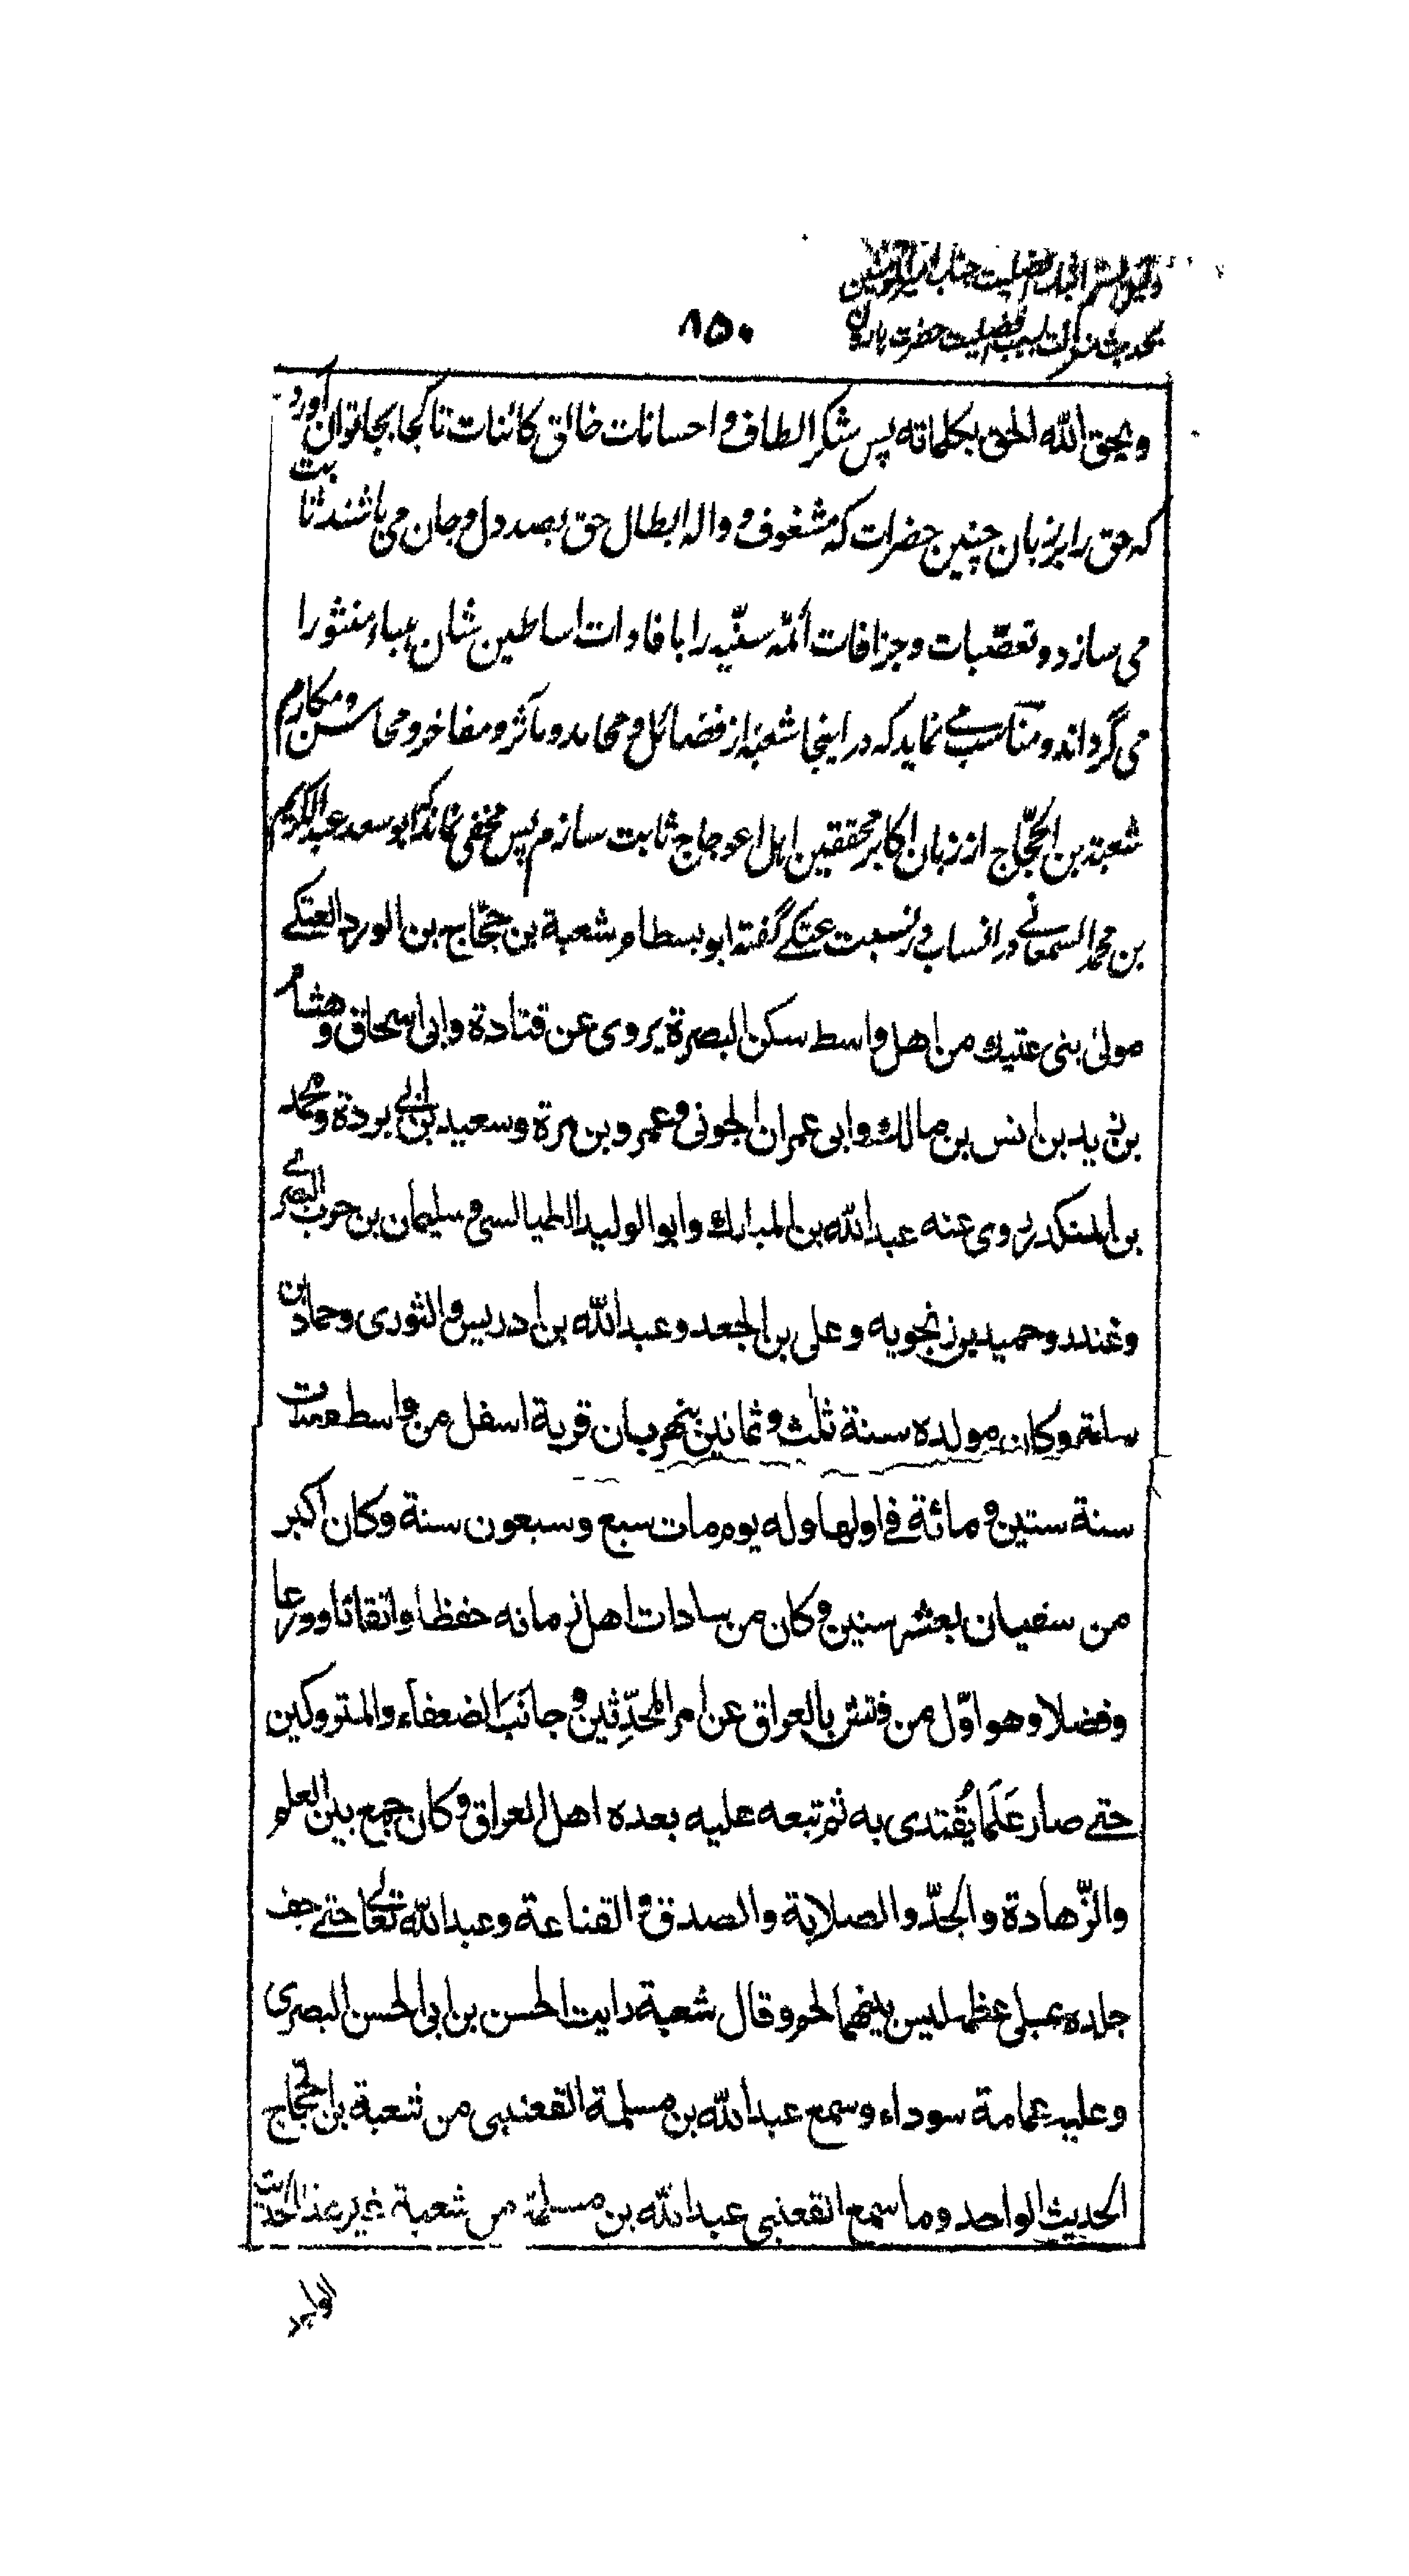 دلیل شعبه افضلیت جناب امیر المؤمنین
بحدیث منزلت بسبب افضلیت حضرت هارون
۸۵۰
ویحق الله الحق بکلماته پس شکر الطاف و احسانات خالق کائنات تا کجا بجا توان آورد
که حق را بر زبان چنین حضرات که مشغوف و واله ابطال حق بصد دل و جان می باشند ثابت
می سازد و تعصّبات و جزافات أئمّه سنّیه را بافادات اساطین شان هباء منثورا
می گرداند و مناسب می نماید که در اینجا شعبهٔ از فضائل و محامد و مآثر و مفاخر و محاسن و مکارم
شعبة بن الحجّاج از زبان اکابر محققین اهل اعوجاج ثابت سازم پس مخفی نماند که ابو سعد عبد الکریم
بن محمد السمعانے در انساب در نسبت عتکے گفته ابو بسطام شعبة بن حجّاج بن الورد العتکے
مولیٰ بنی عتیك من اهل واسط سکن البصرة یروی عن قتادة وابی اسحاق وهشام
بن زید بن انس بن مالك وابی عمران الجونی وعمرو بن مرة وسعید بن ابی بردة ومحمد
بن المنکدر روی عنه عبد الله بن المبارك وابو الولید الطیالسی وسلیمان بن حرب البصری
وغندر وحمید بن زنجویه وعلی بن الجعد وعبد الله بن ادریس والثوری وحماد بن
سلمة وکان مولده سنة ثلٰث وثمانین بنهربان قریة اسفل من واسط ومات
سنة ستین و مائة فے اولها وله یوم مات سبع وسبعون سنة وکان اکبر
من سفیان بعشر سنین وکان من سادات اهل زمانه حفظا واتقانا وورعا
وفضلا وهو اوّل من فتش بالعراق عن امر المحدّثین وجانَبَ الضعفاء والمتروکین
حتے صار عَلَما یُقتدی به ثم تبعه علیه بعده اهل العراق وکان جمع بین العلم
والزّهادة والجدّ والصلابة والصدق و القناعة وعبد الله تعالی حتے جف
جلده علی عظمه لیس بینهما لحم وقال شعبة رایت الحسن بن ابی الحسن البصری
وعلیه عمامة سوداء وسمع عبد الله بن مسلمة القعنبی من شعبة بن الحجّاج
الحدیث الواحد وما سمع القعنبی عبد الله بن مسلمة من شعبة غیر هذا الحدیث
الواحد